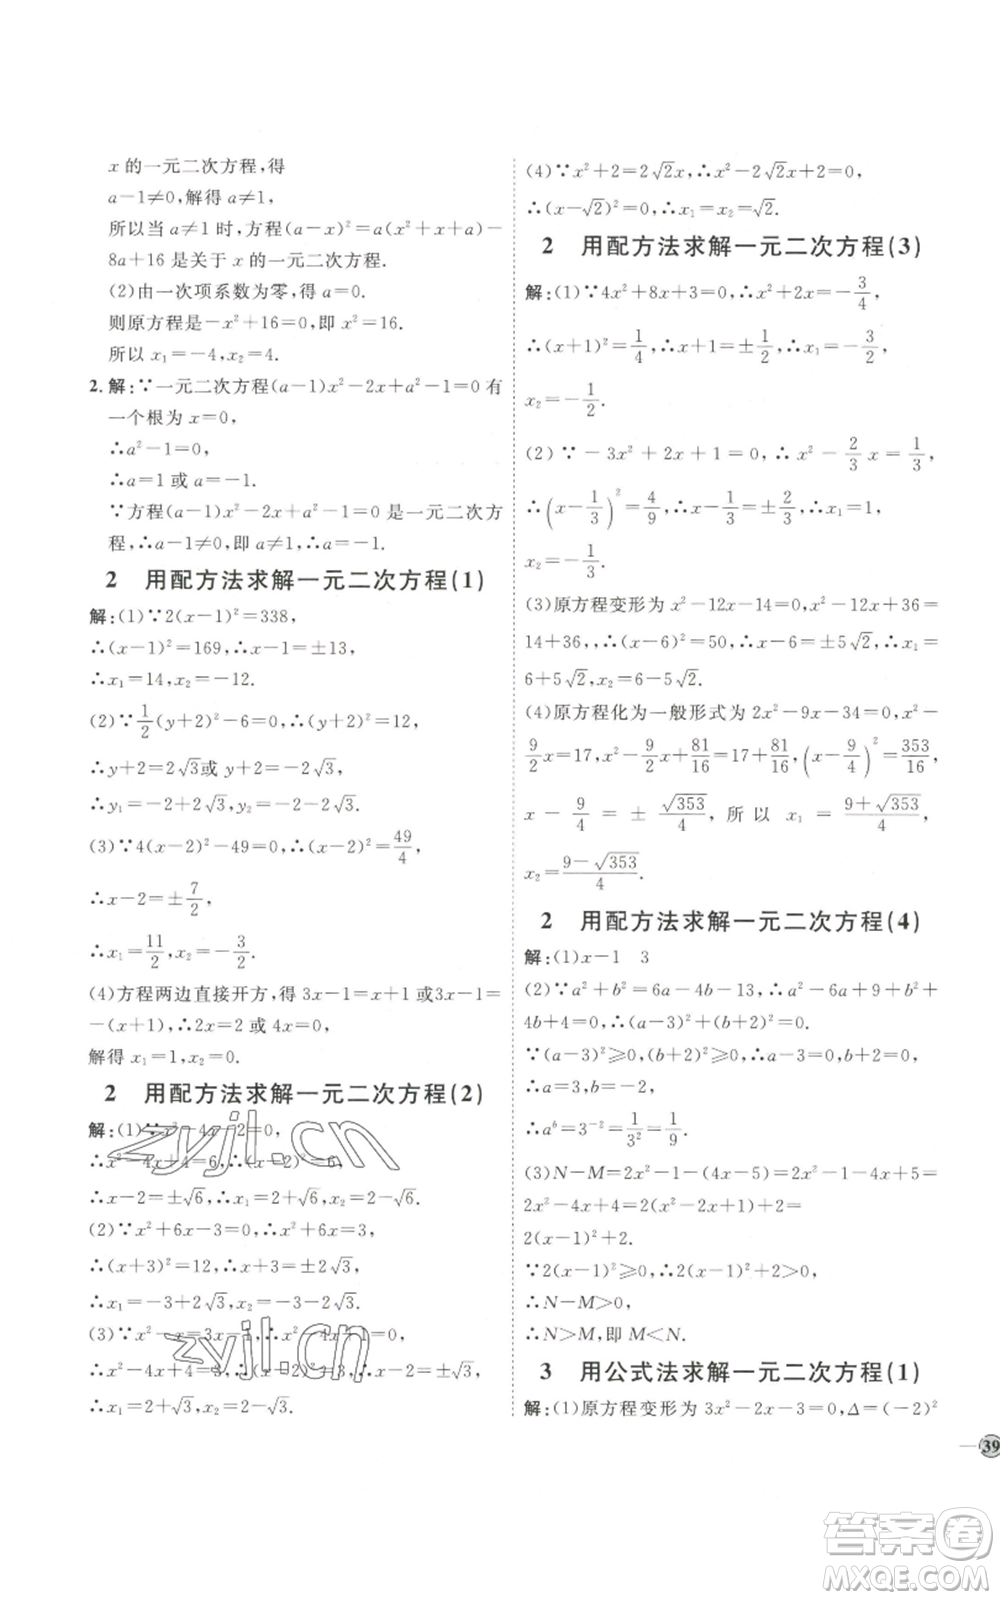 x 的一元二次方程，得
a－1≠0，解得 a≠1，
所以当 a≠1 时，方程(a－x)²＝a(x²＋x)－
8a＋16 是关于 x 的一元二次方程.
(2)由一次项系数为零，得 a＝0.
则原方程是－x²＋16＝0，即 x²＝16.
所以 x₁＝－4，x₂＝4.
2. 解：∵一元二次方程(a－1)x²－2x＋a²－1＝0 有
一个根为 x＝0，
∴a²－1＝0，
∴a＝1 或 a＝－1.
∵方程(a－1)x²－2x＋a²－1＝0 是一元二次方
程，∴a－1≠0，即 a≠1，∴a＝－1.
2 用配方法求解一元二次方程(1)
解：(1)∵2(x－1)²＝338，
∴(x－1)²＝169，∴x－1＝±13，
∴x₁＝14，x₂＝－12.
(2)∵1/2(y＋2)²－6＝0，∴(y＋2)²＝12，
∴y＋2＝2√3或 y＋2＝－2√3，
∴y₁＝－2＋2√3，y₂＝－2－2√3.
(3)∵4(x－2)²－49＝0，∴(x－2)²＝49/4，
∴x－2＝±7/2，
∴x₁＝11/2，x₂＝－3/2.
(4)方程两边直接开方，得 3x－1＝x＋1 或3x－1＝
－(x＋1)，∴2x＝2 或 4x＝0，
解得 x₁＝1，x₂＝0.
2 用配方法求解一元二次方程(2)
解：(1)∵x²－4x－2＝0，
∴x²－4x＋4＝6，∴(x－2)²＝6，
∴x－2＝±√6，∴x₁＝2＋√6，x₂＝2－√6.
(2)∵x²＋6x－3＝0，∴x²＋6x＝3，
∴(x＋3)²＝12，∴x＋3＝±2√3，
∴x₁＝－3＋2√3，x₂＝－3－2√3.
(3)∵x²－4x＝－1，
∴x²－4x＋4＝3，∴(x－2)²＝3，∴x－2＝±√3，
∴x₁＝2＋√3，x₂＝2－√3.
(4)∵x²＋2＝2√2x，∴x²－2√2x＋2＝0，
∴(x－√2)²＝0，∴x₁＝x₂＝√2.
2 用配方法求解一元二次方程(3)
解：(1)∵4x²＋8x＋3＝0，∴x²＋2x＝－3/4，
∴(x＋1)²＝1/4，∴x＋1＝±1/2，∴x₁＝－3/2，
x₂＝－1/2.
(2)∵－3x²＋2x＋1＝0，∴x²－2/3x＝1/3，
∴(x－1/3)²＝4/9，∴x－1/3＝±2/3，∴x₁＝1，
x₂＝－1/3.
(3)原方程变形为 x²－12x－14＝0，x²－12x＋36＝
14＋36，，∴(x－6)²＝50，∴x－6＝±5√2，∴x₁＝
6＋5√2，x₂＝6－5√2.
(4)原方程化为一般形式为 2x²－9x－34＝0，x²－
9/2x＝17，x²－9/2x＋81/16＝17＋81/16，(x－9/4)²＝353/16，
x－9/4＝±√353/4，所以 x₁＝(9＋√353)/4，
x₂＝(9－√353)/4.
2 用配方法求解一元二次方程(4)
解：(1)x－1 3
(2)∵a²＋b²＝6a－4b－13，∴a²－6a＋9＋b²＋
4b＋4＝0，∴(a－3)²＋(b＋2)²＝0.
∵(a－3)²≥0，(b＋2)²≥0，
∴a＝3，b＝－2，
∴aᵇ＝3⁻²＝1/3²＝1/9.
(3)N－M＝2x²－1－(4x－5)＝2x²－1－4x＋5＝
2x²－4x＋4＝2(x²－2x＋1)＋2＝
2(x－1)²＋2.
∵2(x－1)²≥0，∴2(x－1)²＋2>0，
∴N－M>0，
∴N>M，即 M<N.
3 用公式法求解一元二次方程(1)
解：(1)原方程变形为 3x²－2x－3＝0，Δ＝(－2)²
39
zyjl.cn
zyjl.cn
答案卷
MXQE.COM